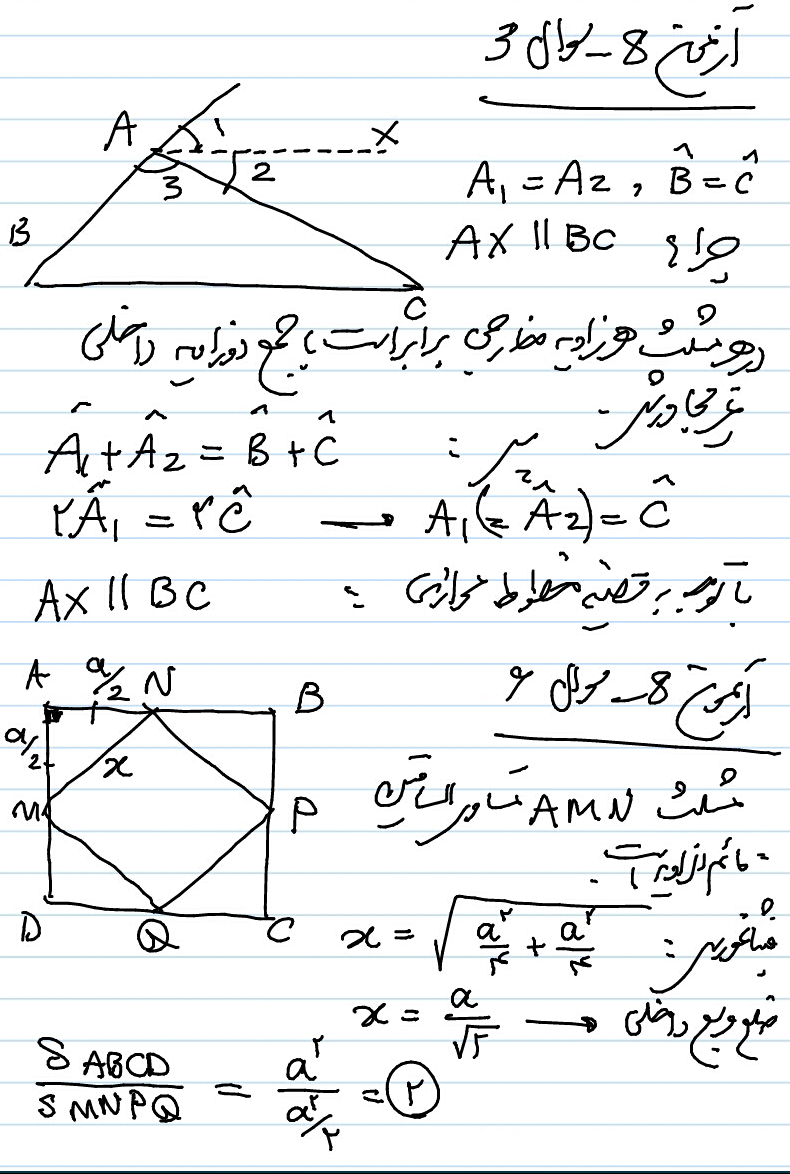 آزمون 8 - سوال 3
A 1 X
3 2
B
C
A₁ = A₂ , B̂ = Ĉ
AX || BC چرا؟
در هر مثلث هر زاویه خارجی برابر است با جمع دو زاویه داخلی
غیر مجاورش.
پس: Â₁ + Â₂ = B̂ + Ĉ
۲Â₁ = ۲Ĉ → A₁(= Â₂) = Ĉ
با توجه به قضیه خطوط موازی: AX || BC
آزمون 8 - سوال ۶
A a/2 N B
a/2
x
M P
D Q C
مثلث AMN متساوی الساقین
قائم الزاویه است.
فیثاغورس: x = √(a²/۴ + a²/۴)
x = a/√۲ → ضلع مربع داخلی
S ABCD / S MNPQ = a² / (a²/۲) = ۲